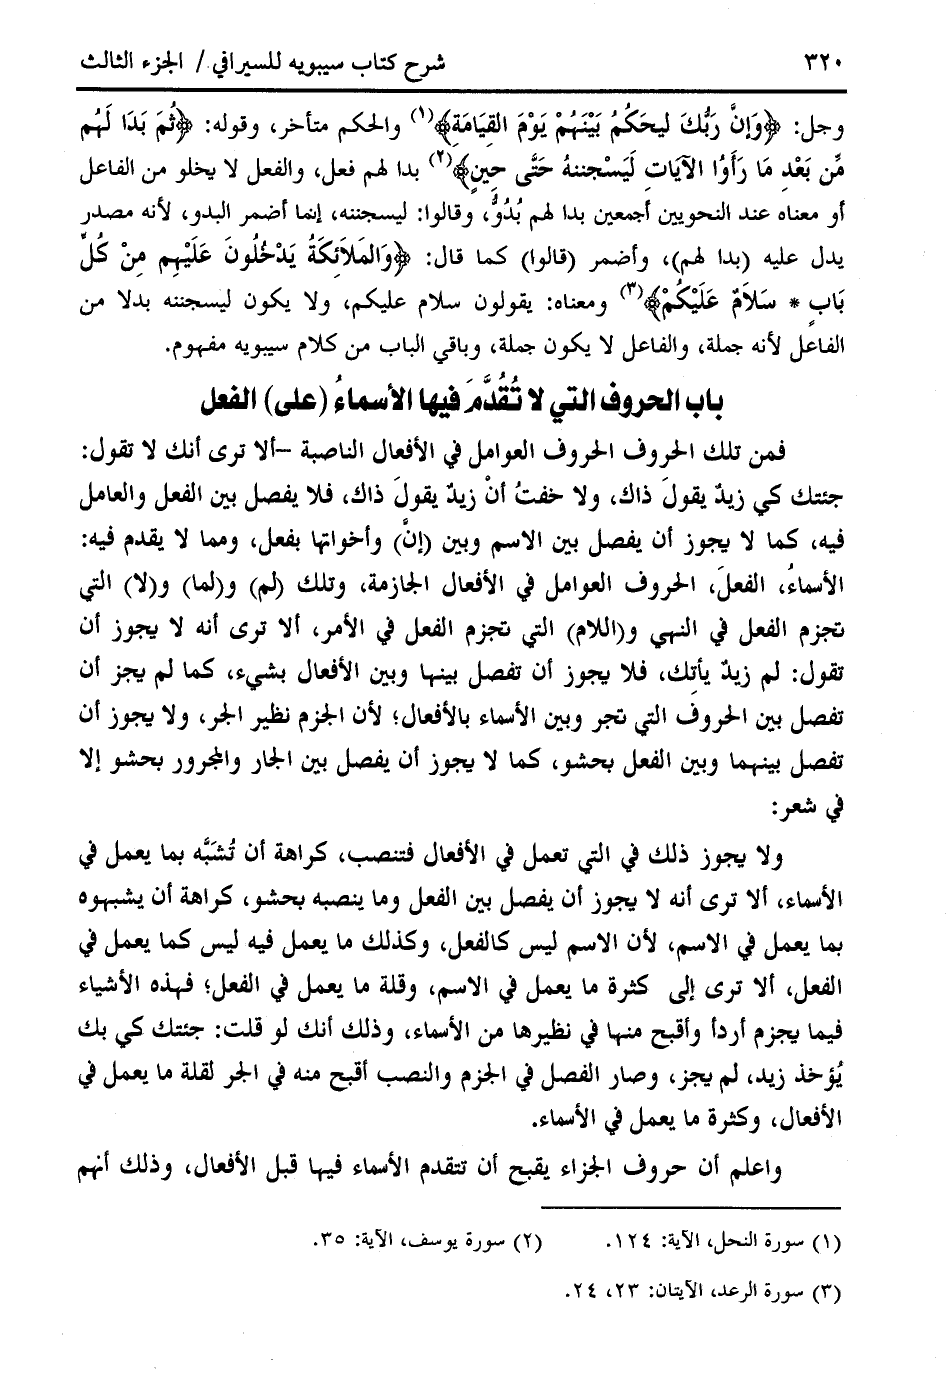 ٣٢٠ شرح كتاب سيبويه للسيرافي / الجزء الثالث
وجل: ﴿وَإِنَّ رَبَّكَ ليحَكُمُ بَيْنَهُمْ يَوْمَ القِيَامَةِ﴾(١) والحكم متأخر، وقوله: ﴿ثُمَ بَدَا لَهُم
مِّن بَعْدِ مَا رَأَوُا الآيَاتِ لَيَسْجننهُ حَتَّى حِينٍ﴾(٢) بدا لهم فعل، والفعل لا يخلو من الفاعل
أو معناه عند النحويين أجمعين بدا لهم بُدُوٌّ، وقالوا: ليسجننه، إنما أضمر البدو، لأنه مصدر
يدل عليه (بدا لهم)، وأضمر (قالوا) كما قال: ﴿وَالمَلاَئِكَةُ يَدْخُلُونَ عَلَيْهِم مِنْ كُلِّ
بَابٍ * سَلاَمٌ عَلَيْكُمْ﴾(٣) ومعناه: يقولون سلام عليكم، ولا يكون ليسجننه بدلا من
الفاعل لأنه جملة، والفاعل لا يكون جملة، وباقي الباب من كلام سيبويه مفهوم.
باب الحروف التي لا تُقُدَّمَ فيها الأسماءُ (على) الفعل
فمن تلك الحروف الحروف العوامل في الأفعال الناصبة –ألا ترى أنك لا تقول:
جئتك كي زيدٌ يقولَ ذاك، ولا خفتُ أنْ زيدٌ يقولَ ذاك، فلا يفصل بين الفعل والعامل
فيه، كما لا يجوز أن يفصل بين الاسم وبين (إنَّ) وأخواتها بفعل، ومما لا يقدم فيه:
الأسماءُ، الفعلَ، الحروف العوامل في الأفعال الجازمة، وتلك (لم) و(لما) و(لا) التي
تجزم الفعل في النهي و(اللام) التي تجزم الفعل في الأمر، ألا ترى أنه لا يجوز أن
تقول: لم زيدٌ يأتِك، فلا يجوز أن تفصل بينها وبين الأفعال بشيء، كما لم يجز أن
تفصل بين الحروف التي تجر وبين الأسماء بالأفعال؛ لأن الجزم نظير الجر، ولا يجوز أن
تفصل بينهما وبين الفعل بحشو، كما لا يجوز أن يفصل بين الجار والمجرور بحشو إلا
في شعر:
ولا يجوز ذلك في التي تعمل في الأفعال فتنصب، كراهة أن تُشبَّه بما يعمل في
الأسماء، ألا ترى أنه لا يجوز أن يفصل بين الفعل وما ينصبه بحشو، كراهة أن يشبهوه
بما يعمل في الاسم، لأن الاسم ليس كالفعل، وكذلك ما يعمل فيه ليس كما يعمل في
الفعل، ألا ترى إلى كثرة ما يعمل في الاسم، وقلة ما يعمل في الفعل؛ فهذه الأشياء
فيما يجزم أردأ وأقبح منها في نظيرها من الأسماء، وذلك أنك لو قلت: جئتك كي بك
يُؤخذ زيد، لم يجز، وصار الفصل في الجزم والنصب أقبح منه في الجر لقلة ما يعمل في
الأفعال، وكثرة ما يعمل في الأسماء.
واعلم أن حروف الجزاء يقبح أن تتقدم الأسماء فيها قبل الأفعال، وذلك أنهم
(١) سورة النحل، الآية: ١٢٤. (٢) سورة يوسف، الآية: ٣٥.
(٣) سورة الرعد، الآيتان: ٢٣، ٢٤.